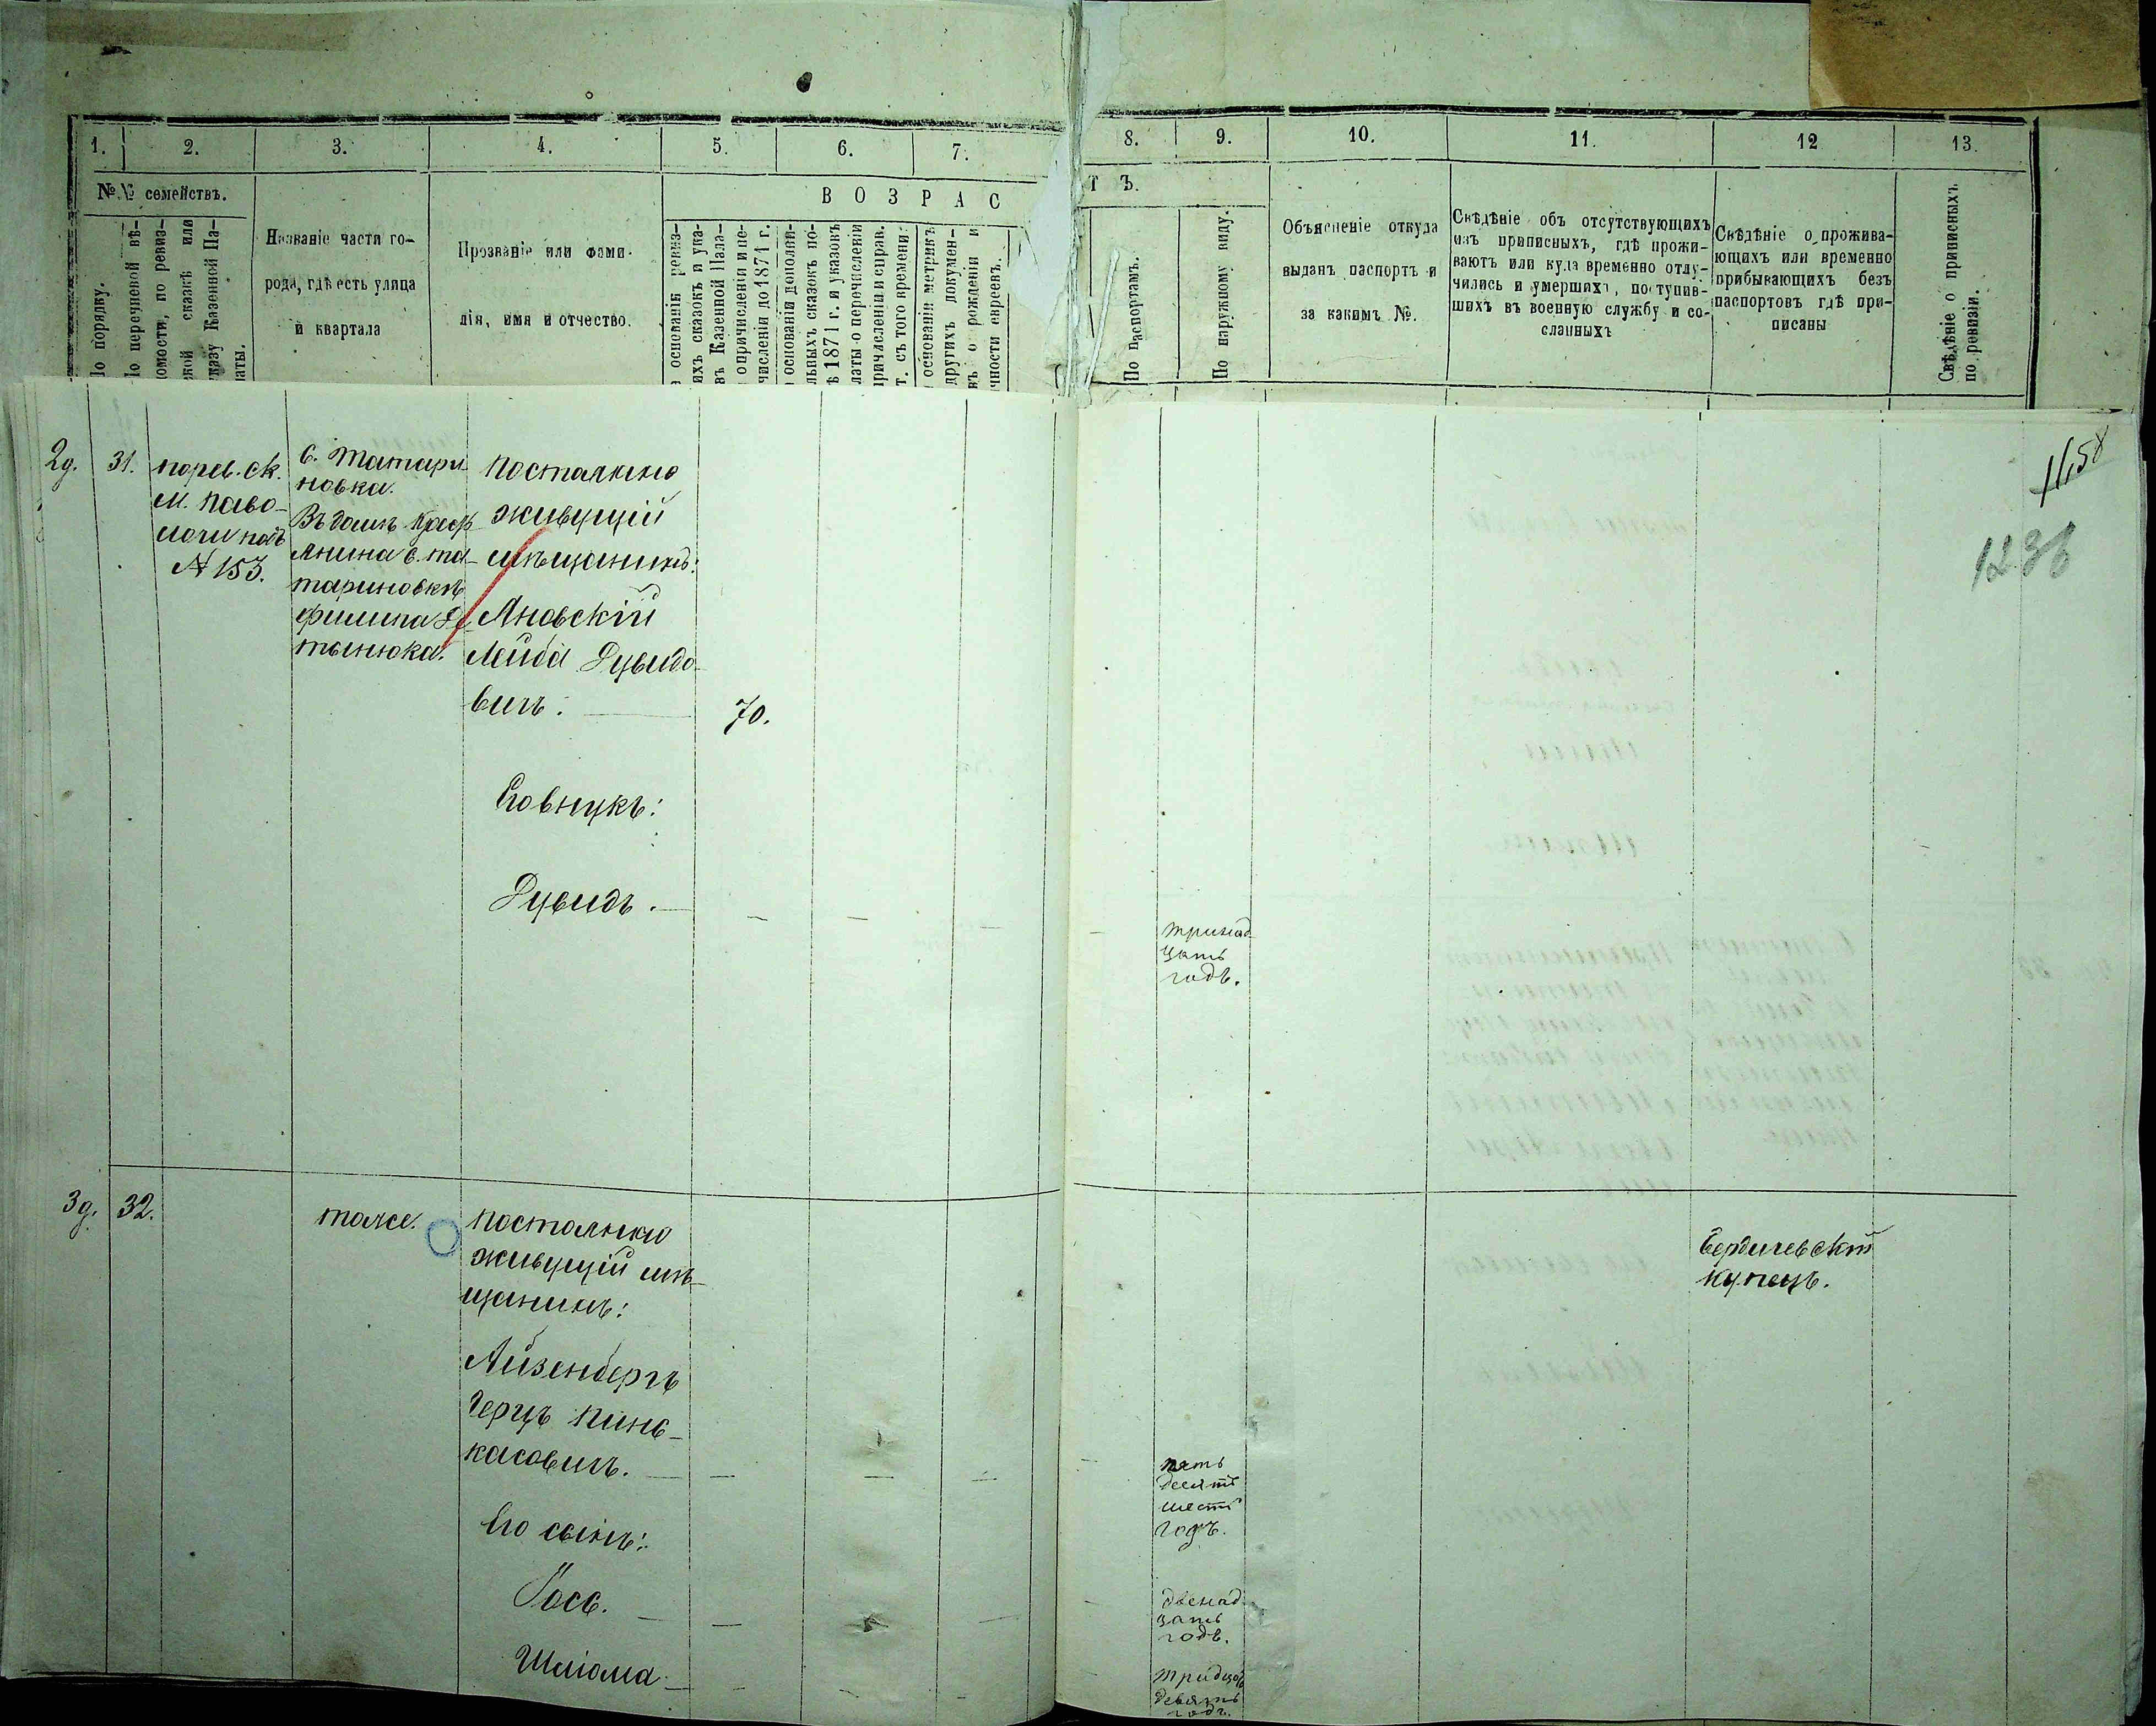 1. 2. 3. 4. 5. 6. 7.
№№ семействъ.
В О З Р А С
По порядку.
По перечневой вѣ-
домости, по ревиз-
ской сказкѣ или
указу Казенной Па-
латы.
Названіе части го-
рода, гдѣ есть улица
и квартала
Прозваніе или фами-
лія, имя и отчество.
основаніи ревиз-
ихъ сказокъ и ука-
въ Казенной Пала-
опричисленіи и пе-
численіи до 1871 г.
основаніи дополни-
льныхъ сказокъ по-
ѣ 1871 г. и указокъ
латы о перечисленіи
причисленіи и справ.
т. съ того времени.
основаніи метрикъ
другихъ докумен-
въ о рожденіи и
чности евреевъ.
8. 9. 10. 11. 12 13.
Т Ъ.
По паспортамъ.
По наружному виду.
Объясненіе откуда
выданъ паспортъ и
за какимъ №.
Свѣдѣніе объ отсутствующихъ
изъ приписныхъ, гдѣ прожи-
ваютъ или куда временно отлу-
чились и умершихъ, поступив-
шихъ въ военную службу и со-
сланныхъ
Свѣдѣніе о прожива-
ющихъ или временно
прибывающихъ безъ
паспортовъ гдѣ при-
писаны
Свѣдѣніе о приписныхъ
по ревизіи.
1158
1236
2д. 31.
порев. ск.
м. Паво-
лочи подъ
№ 153.
С. Татари-
новка.
Въ домѣ крест-
янина с. та-
тариновкѣ
филипа
тынюка.
постаянно
живущій
мѣщанинъ:
Яновскій
Лейба Дувидо-
вичъ. 70.
Его внукъ:
Дувидъ. —
тринад-
цать
годъ.
3д. 32.
тоже.
постаянно
живущій мѣ-
щанинъ:
Айзенбергъ
Герцъ Пинь-
касовичъ. —
пять
десятъ
шесть
годъ.
Бердичевскій
купецъ.
Его сынъ:
Іось. —
двенад-
цать
годъ.
Шліома —
тридцать
девять
годъ.